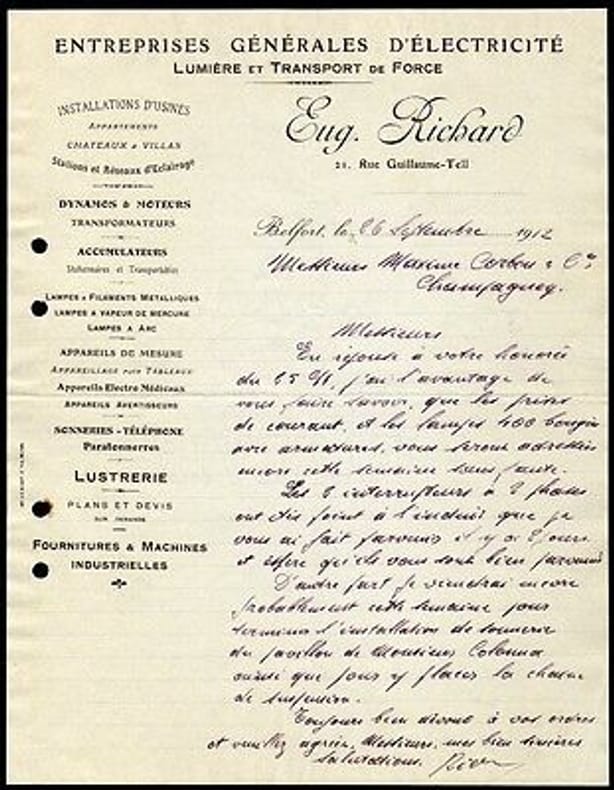 ENTREPRISES GÉNÉRALES D'ÉLECTRICITÉ
LUMIÈRE ET TRANSPORT DE FORCE
INSTALLATIONS D'USINES
APPARTEMENTS
CHATEAUX & VILLAS
Stations et Réseaux d'Eclairage
DYNAMOS & MOTEURS
TRANSFORMATEURS
ACCUMULATEURS
Stationnaires et Transportables
LAMPES A FILAMENTS MÉTALLIQUES
LAMPES A VAPEUR DE MERCURE
LAMPES A ARC
APPAREILS DE MESURE
APPAREILLAGE POUR TABLEAUX
Appareils Electro Médicaux
APPAREILS AVERTISSEURS
SONNERIES - TÉLÉPHONE
Paratonnerres
LUSTRERIE
PLANS ET DEVIS
SUR DEMANDE
FOURNITURES & MACHINES
INDUSTRIELLES
Eug. Richard
21, Rue Guillaume-Tell
Belfort, le 26 Septembre 1912
Messieurs Maxime Corbon & Cie
Champagney.
Messieurs
En réponse à votre honorée
du 25 , j'ai l'avantage de
vous faire savoir, que les prises
de courant, et les lampes 400 bougies
avec armatures, vous seront adressées
encore cette semaine sans faute.
Les 2 interrupteurs à 2 phases
ont été joint à l'induit que je
vous ai fait parvenir il y a 2 jours
et espère qu'ils vous sont bien parvenus
D'autre part je viendrai encore
probablement cette semaine pour
terminer l'installation de sonnerie
du pavillon de Monsieur Colonna
ainsi que pour y placer la chaine
de suspension.
Toujours bien dévoué à vos ordres
et veuillez agréer, Messieurs, mes bien sincères
salutations.